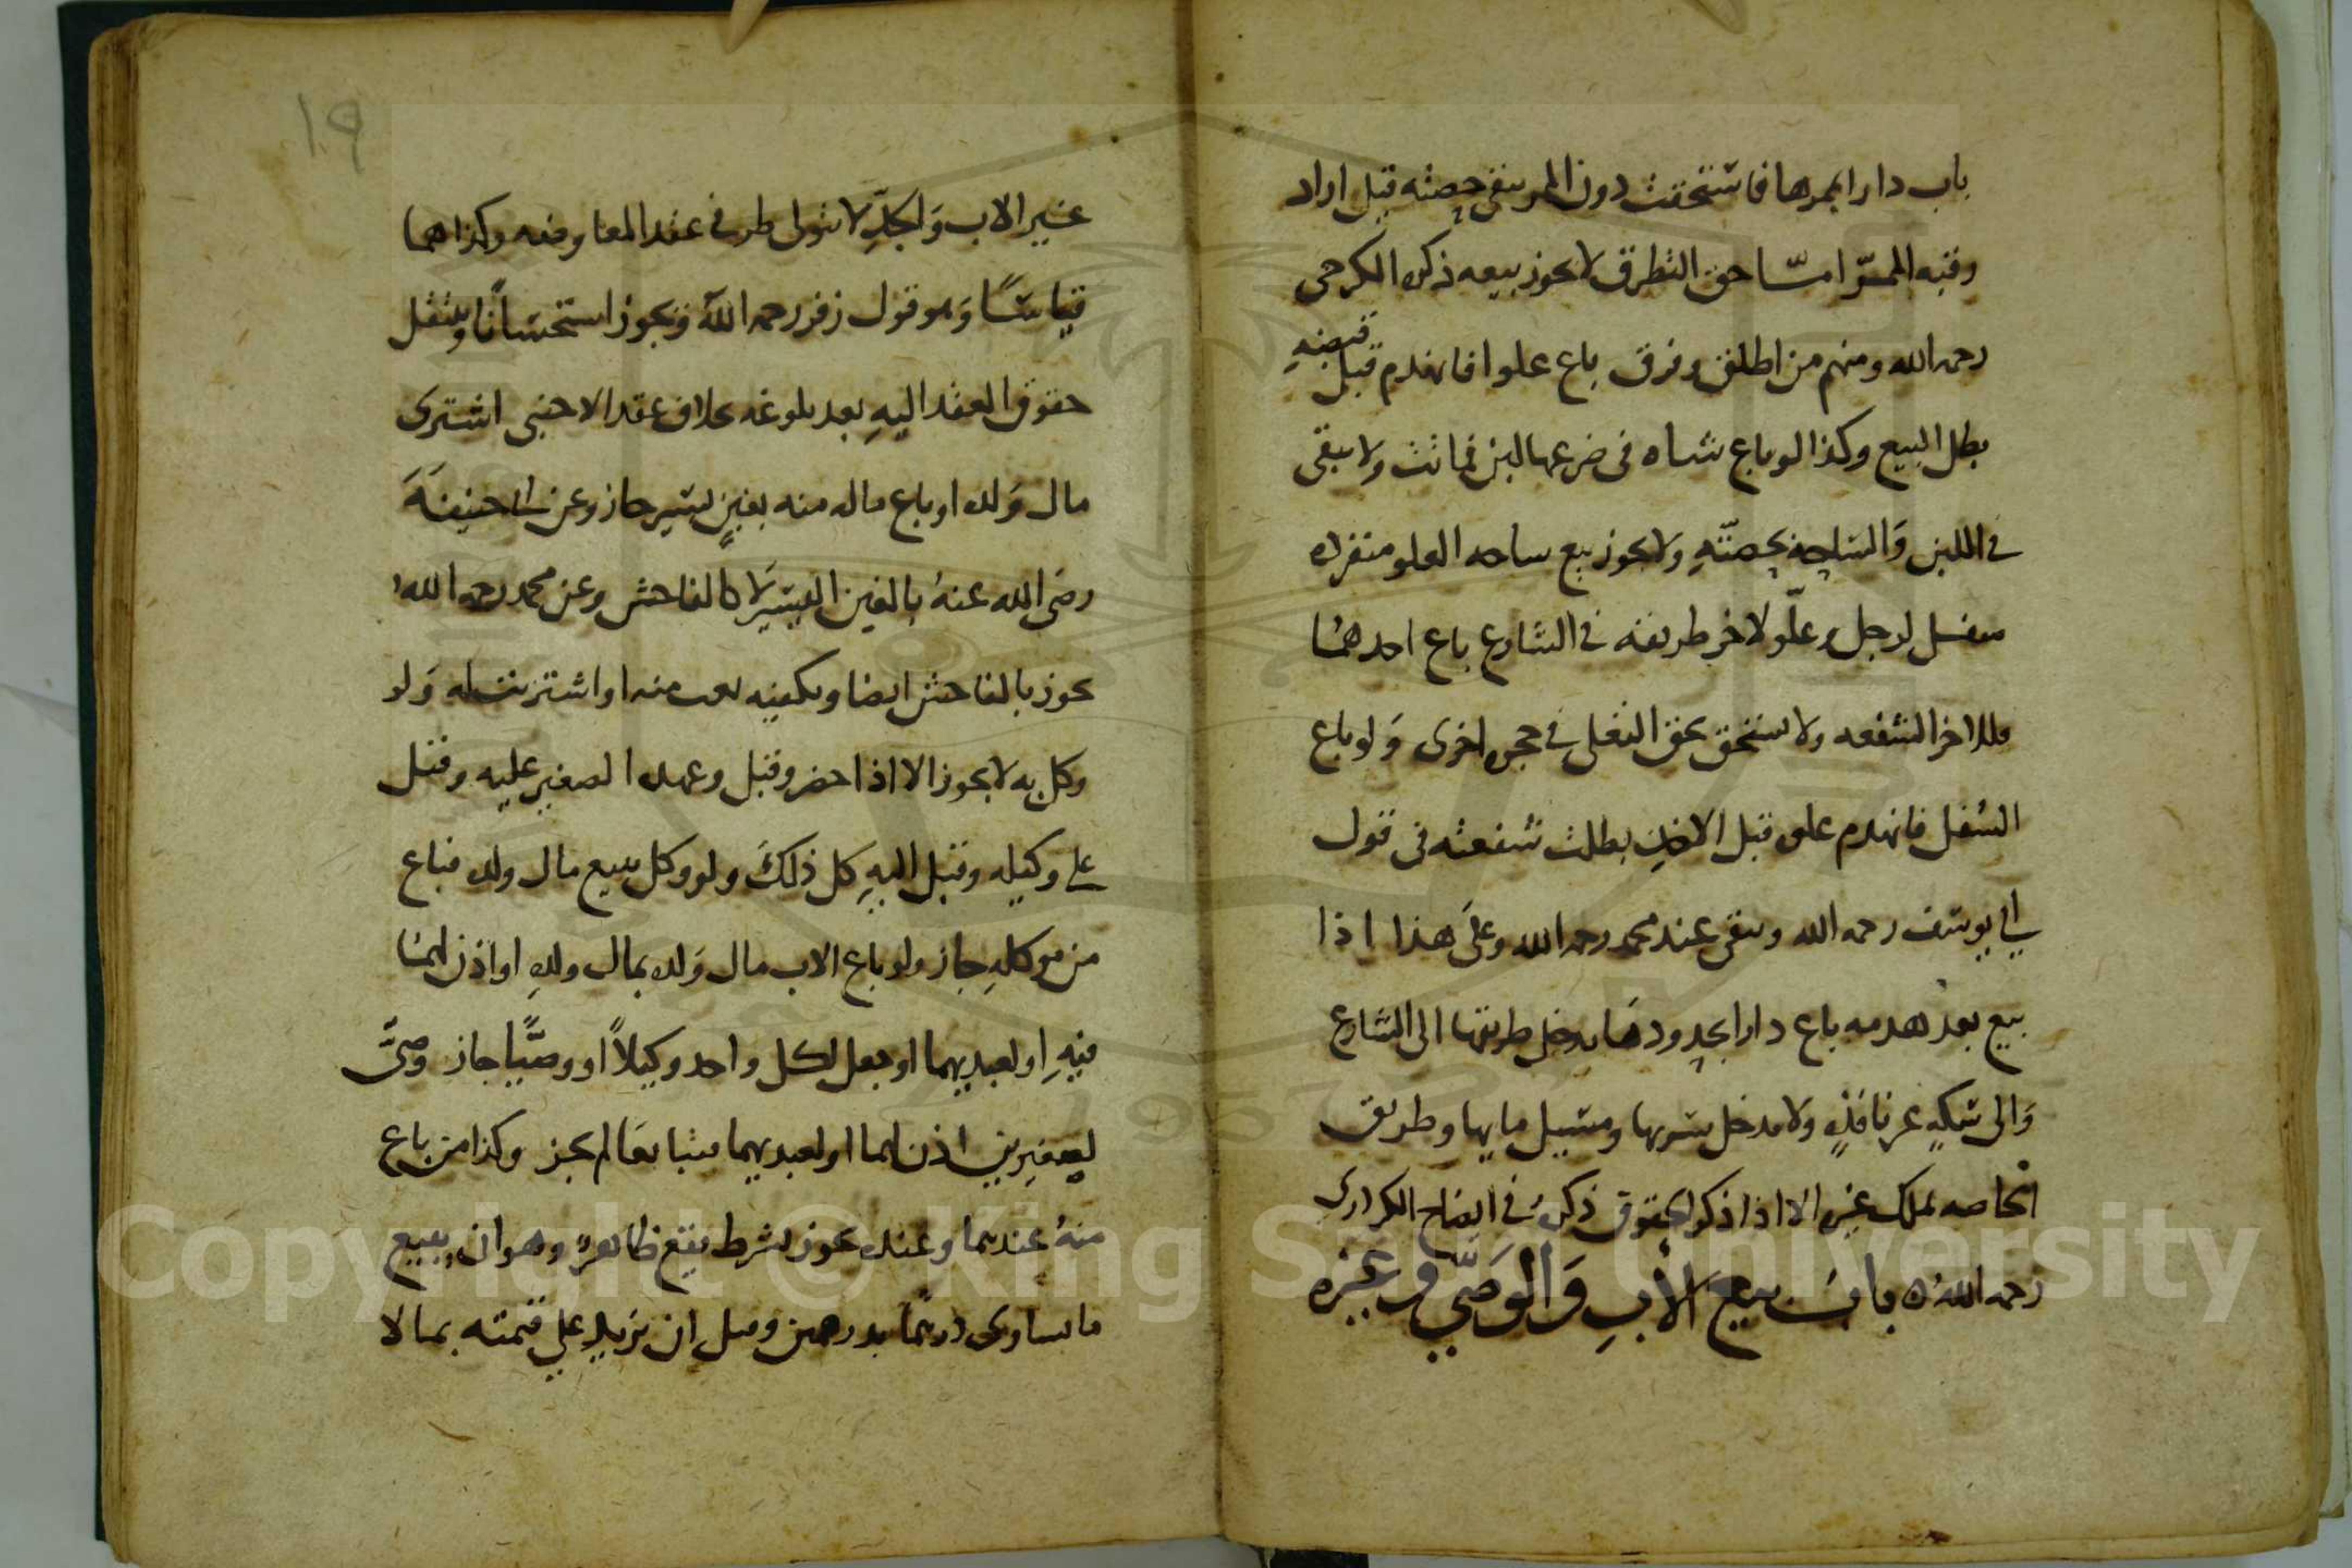 باب دارا بممرها فاستحقت دون الممر يبقى بحصته قيل اراد
رقبة الممر اما حق التطرق لا يجوز بيعه ذكره الكرخي
رحمه الله ومنهم من اطلق وفرق باع علوا فانهدم قبل قبضه
بطل البيع وكذا لو باع شاه في ضرعها لبن فماتت ولا يبقى
في اللبن والساحة بحصته ولا يجوز بيع ساحه العلو منفرده
سفل لرجل وعلو لاخر طريقه في الشارع باع احدهما
فللاخر الشفعه ولا يستحق بحق التعلي في حجره اخرى ولو باع
السفل فانهدم علوه قبل الاخذ بطلت شفعته في قول
ابي يوسف رحمه الله وتبقى عند محمد رحمه الله وعلى هذا اذا
بيع بعد هدمه باع دارا بحدودها يدخل طريقها الى الشارع
والى سكة غير نافذة ولا يدخل شربها ومسيل مايها وطريق
الخاصه بملك غيره الا اذا ذكر الحقوق ذكره في ايضاح الكرداري
رحمه الله باب بيع الأب والوصي وغيره
١٩
غير الاب والجد لا يتولى طرفي عقد المعاوضه وكذا هما
قياسا وهو قول زفر رحمه الله ويجوز استحسانا وينتقل
حقوق العقد اليه بعد بلوغه بخلاف عقد الاجنبي اشترى
مال ولده او باع ماله منه بغبن يسير جاز وعن ابي حنيفة
رضي الله عنه بالغبن اليسير لا كالفاحش وعن محمد رحمه الله
يجوز بالفاحش ايضا ويكفيه بعت منه او اشتريت له ولو
وكل به لا يجوز الا اذا حضر وقبل وعهده الصغير عليه وقيل
على وكيله وقيل اليه كل ذلك ولو وكل ببيع مال ولده فباع
من موكله جاز ولو باع الاب مال ولده بمال ولده او اذن لهما
فيه او لعبديهما او جعل لكل واحد وكيلا او وصيا جاز وصي
لصغيرين اذن لهما او لعبديهما فتبايعا لم يجز وكذا من باع
منه عندهما وعنده يجوز بشرط نفع ظاهر وهو ان يبيع
ما يساوي درهما بدرهمين وقيل ان يزيد على قيمته بما لا